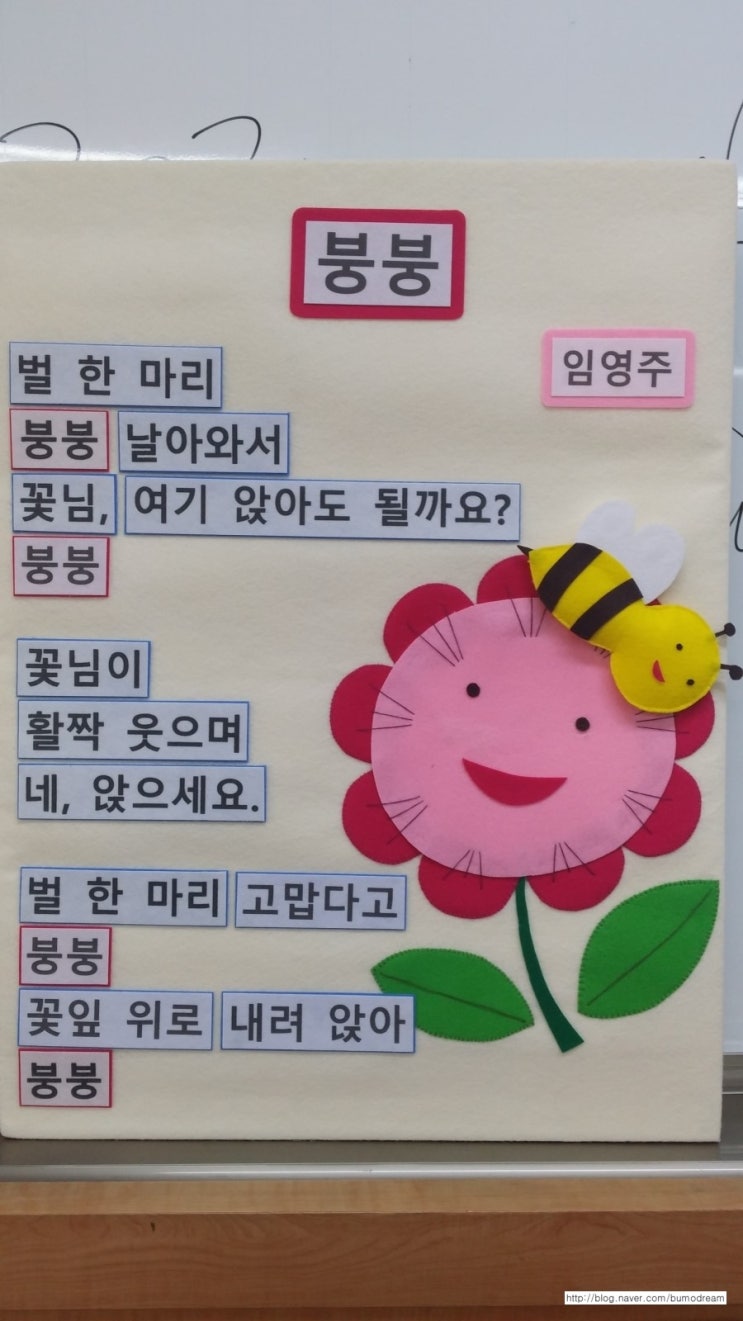 붕붕
임영주
벌 한 마리
붕붕 날아와서
꽃님, 여기 앉아도 될까요?
붕붕
꽃님이
활짝 웃으며
네, 앉으세요.
벌 한 마리 고맙다고
붕붕
꽃잎 위로 내려 앉아
붕붕
http://blog.naver.com/bumodream